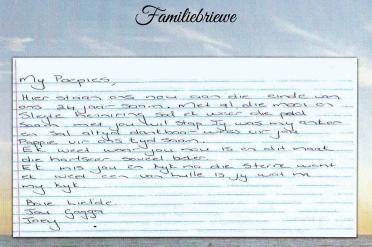 Familiebriewe
My Poepies
Hier staan ons nou aan die einde van
ons 24 jaar saam. Met al die mooi en
Slegte herinering sal ek weer die pad
Saam met jou wil stap Jy was my anker
en sal altyd dankbaar wees vir jou
Pappie vir ons tyd saam.
Ek weet waar jou nou is en dit maak
die hartseer soveel beter.
Ek mis jou en kyk na die sterre want
ek weet een van hulle is jy wat na
my kyk.
Baie liefde.
Jou Gogga
Joey